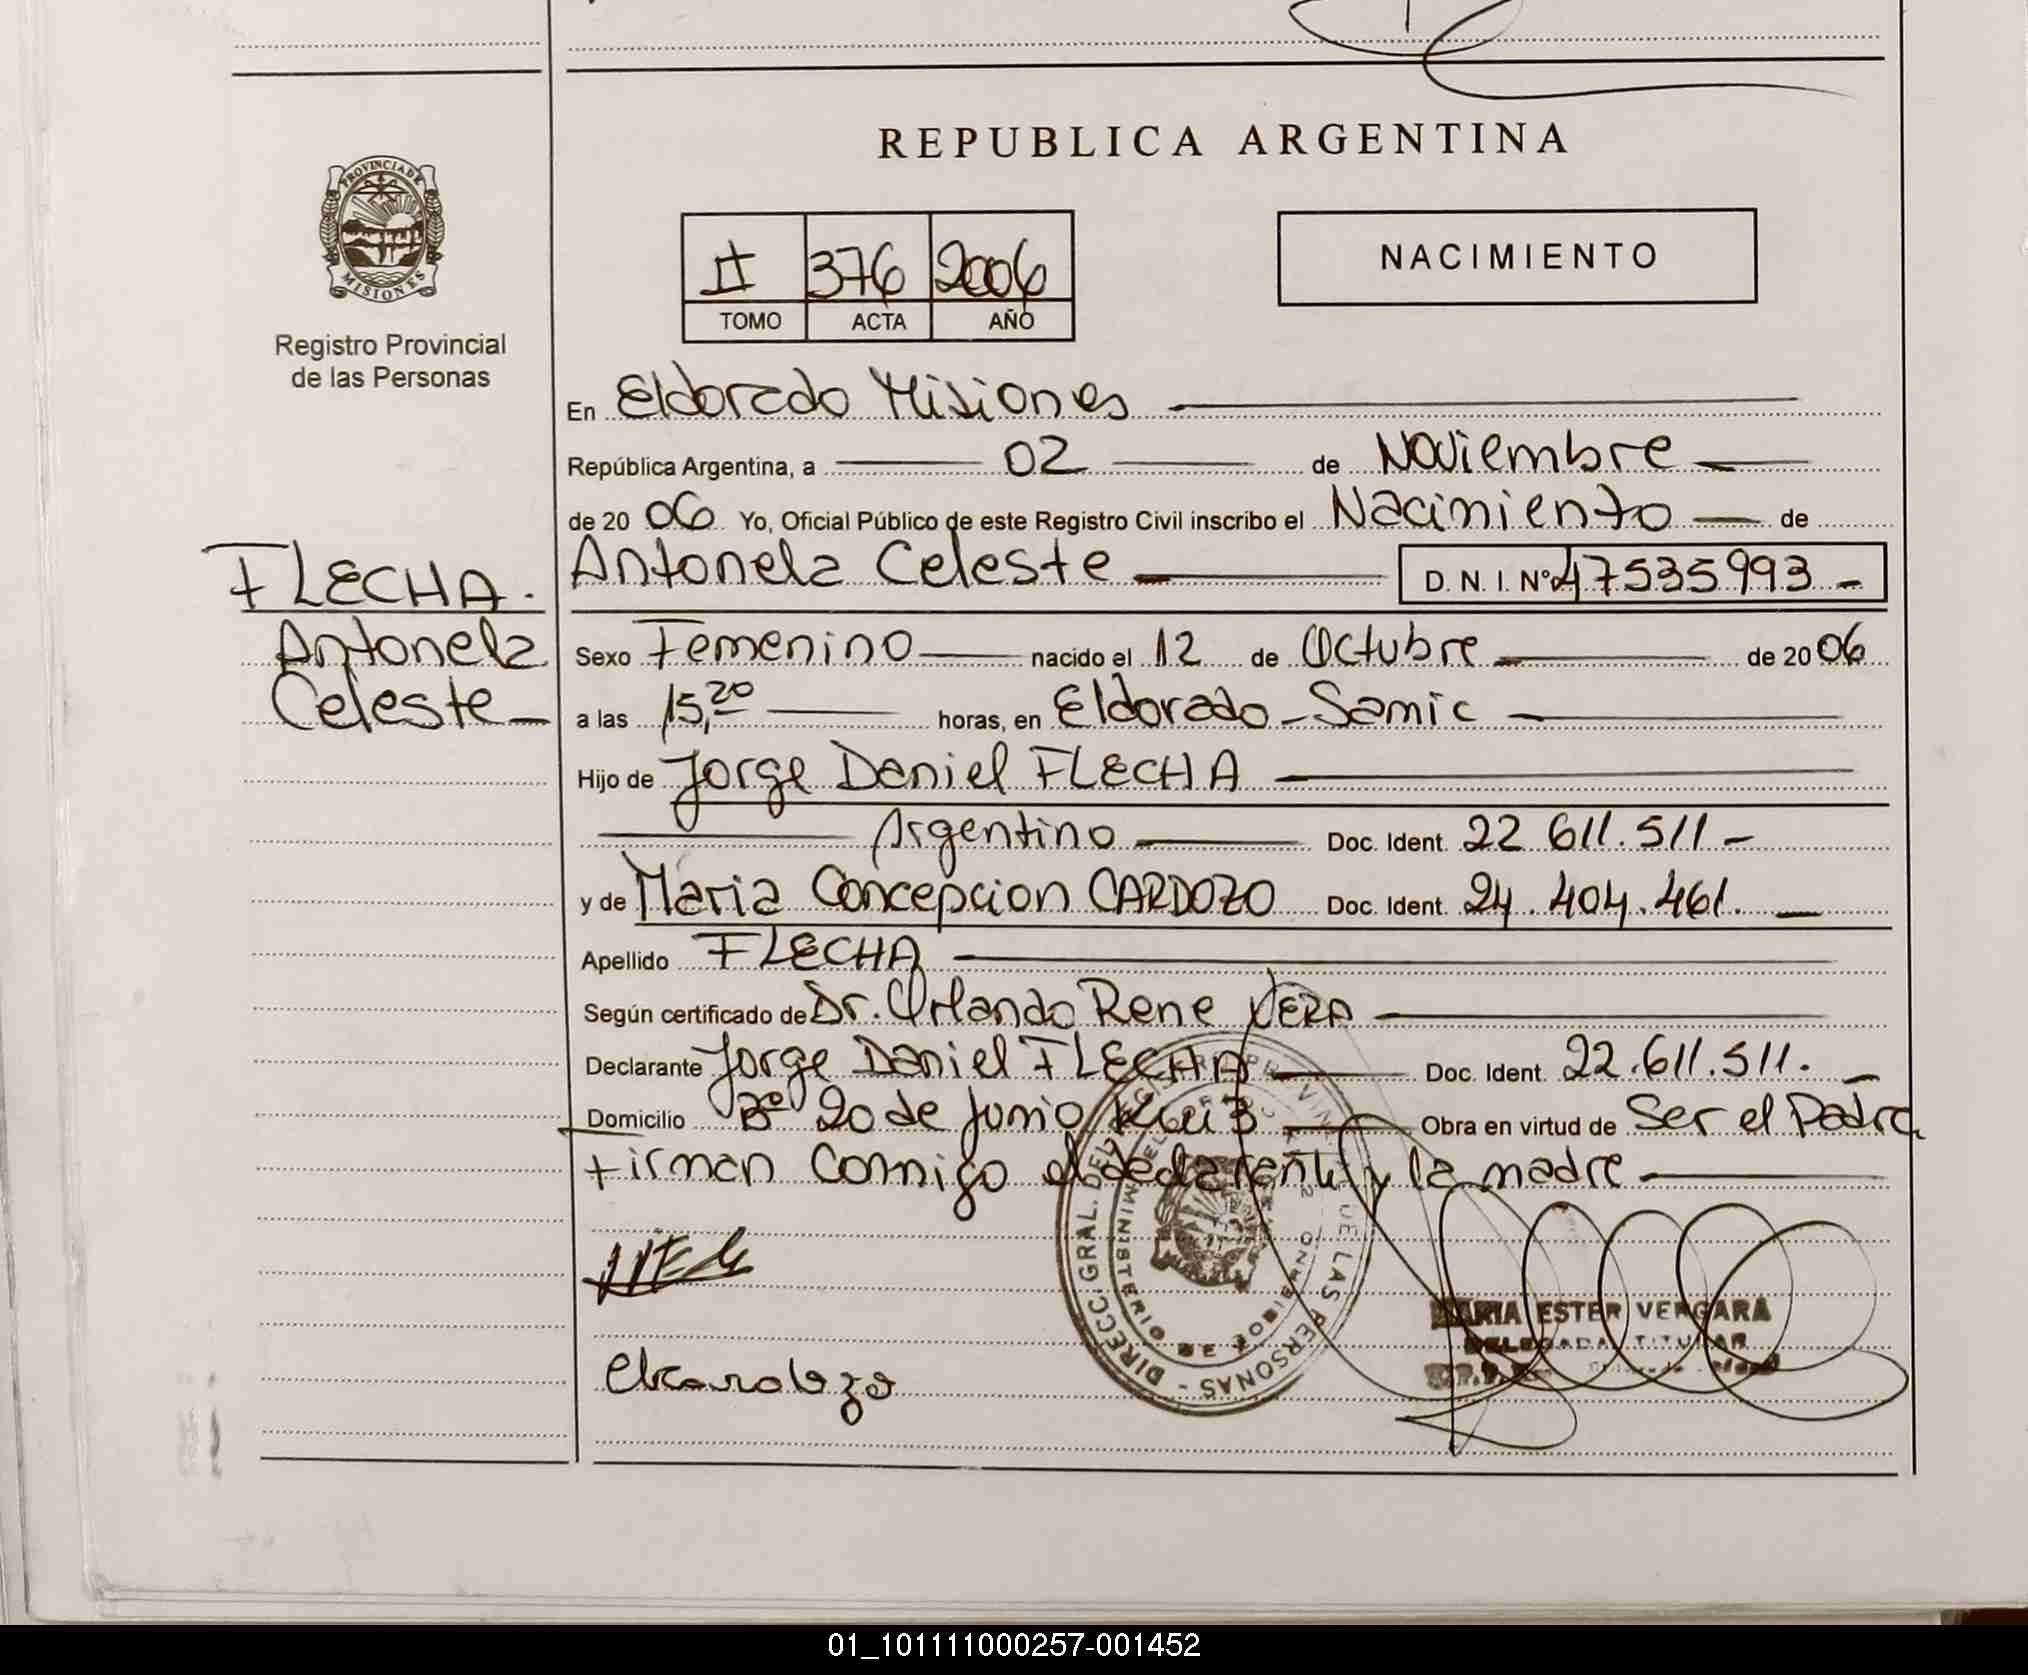 REPUBLICA ARGENTINA
PROVINCIA DE
MISIONES
Registro Provincial
de las Personas
II 376 2006
TOMO ACTA AÑO
NACIMIENTO
En Eldorado Misiones
República Argentina, a 02 de Noviembre
de 2006 Yo, Oficial Público de este Registro Civil inscribo el Nacimiento de
FLECHA.
Antonela
Celeste
Antonela Celeste D. N. I. Nº 47535993
Sexo Femenino nacido el 12 de Octubre de 2006
a las 15,20 horas, en Eldorado - Samic
Hijo de Jorge Daniel FLECHA
Argentino Doc. Ident. 22 611.511
y de Maria Concepcion CARDOZO Doc. Ident. 24.404.461.
Apellido FLECHA
Según certificado de Dr. Orlando Rene VERA
Declarante Jorge Daniel FLECHA Doc. Ident. 22.611.511.
Domicilio Bº 20 de Junio 3 Obra en virtud de Ser el Padre
Firman Conmigo el declarante y la madre
DIRECC. GRAL. DEL DE LAS PERSONAS
MARIA ESTER VERGARA
DELEGADA TITULAR
01_101111000257-001452